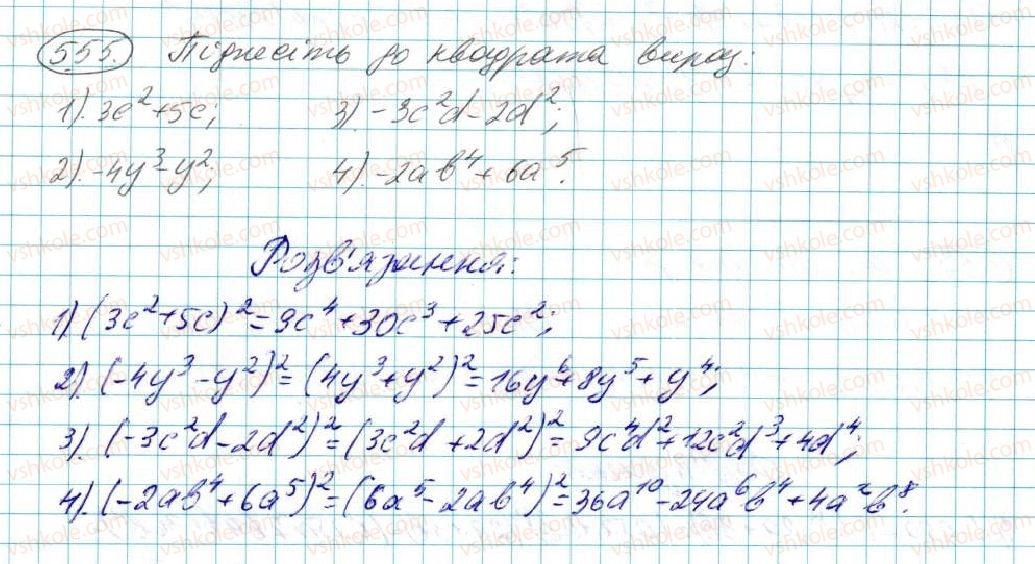 555. Піднесіть до квадрата вираз:
1). 3c²+5c; 3). -3c²d-2d²;
2). -4y³-y²; 4). -2ab⁴+6a⁵.
Розв'язання:
1) (3c²+5c)²=9c⁴+30c³+25c²;
2). (-4y³-y²)²=(4y³+y²)²=16y⁶+8y⁵+y⁴;
3). (-3c²d-2d²)²=(3c²d+2d²)²=9c⁴d²+12c²d³+4d⁴;
4). (-2ab⁴+6a⁵)²=(6a⁵-2ab⁴)²=36a¹⁰-24a⁶b⁴+4a²b⁸.
vshkole.com